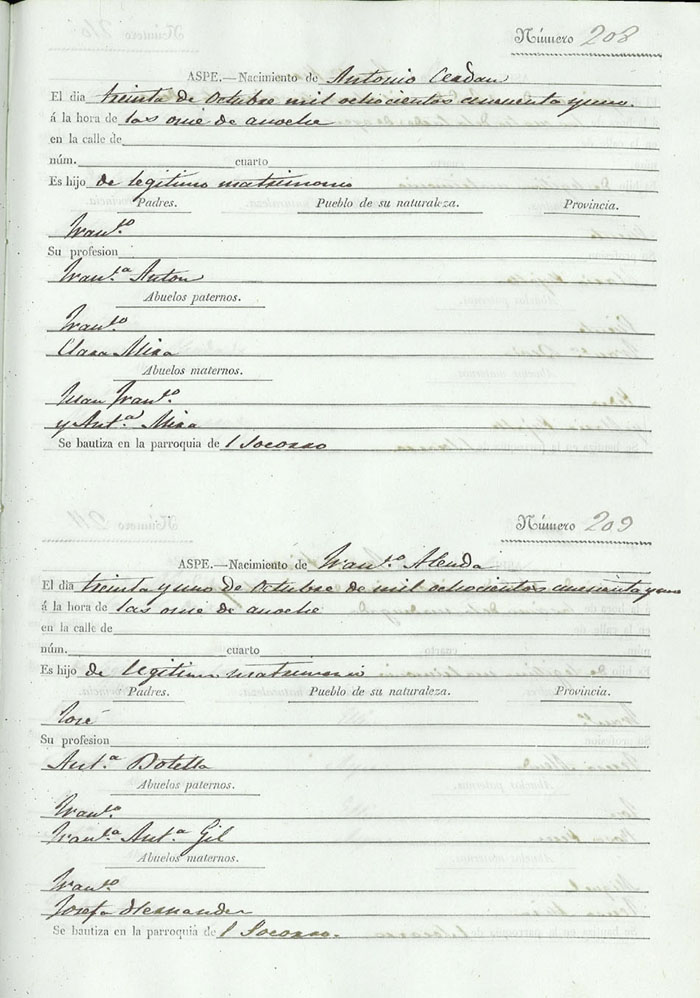 Número 208
ASPE.—Nacimiento de Antonio Cerdan
El dia treinta de Octubre mil ochocientos cincuenta y uno
á la hora de las once de anoche
en la calle de
núm. cuarto
Es hijo de legitimo matrimonio
Padres. Pueblo de su naturaleza. Provincia.
Fran.co
Su profesion
Fran.ca Anton
Abuelos paternos.
Fran.co
Clara Mira
Abuelos maternos.
Juan Fran.co
y Ant.a Mira
Se bautiza en la parroquia de l Socorro
Número 209
ASPE.—Nacimiento de Fran.co Alenda
El dia treinta y uno de Octubre de mil ochocientos cincuenta y uno
á la hora de las once de anoche
en la calle de
núm. cuarto
Es hijo de legitimo matrimonio
Padres. Pueblo de su naturaleza. Provincia.
José
Su profesion
Ant.a Botella
Abuelos paternos.
Fran.co
Fran.ca Ant.a Gil
Abuelos maternos.
Fran.co
Josefa Hernandez
Se bautiza en la parroquia de l Socorro.